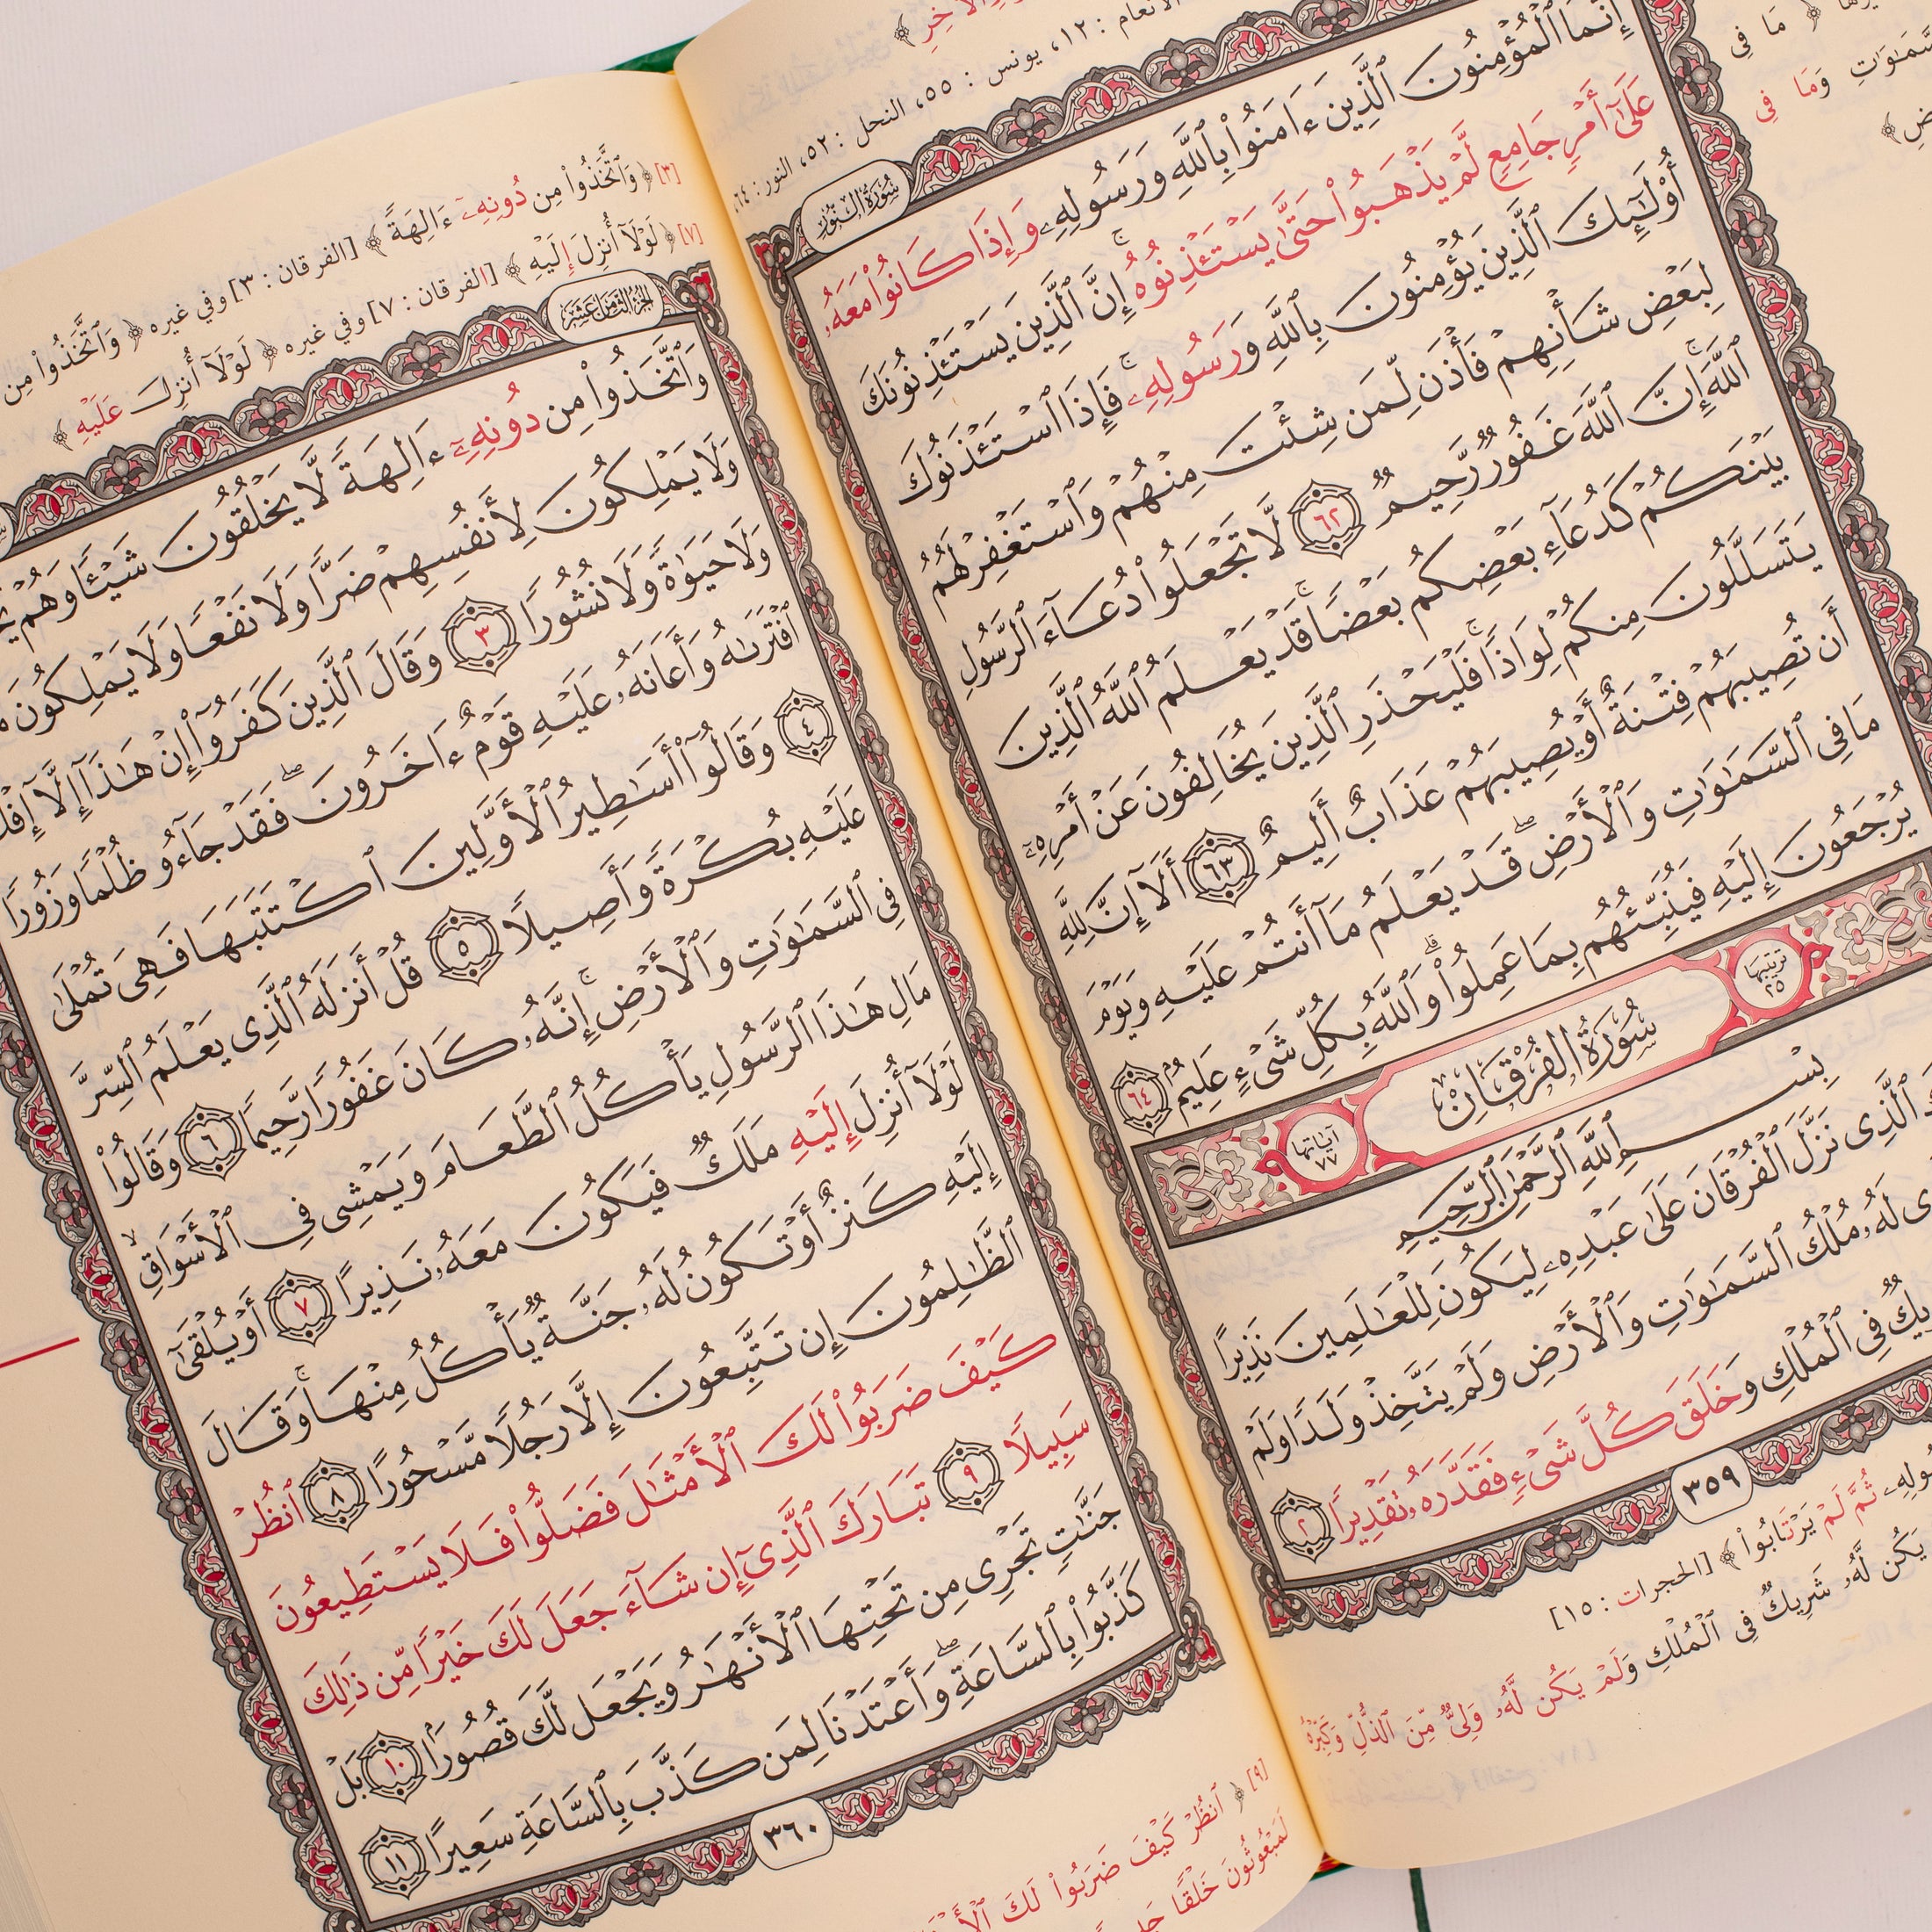 الأنعام : ١٢، يونس : ٥٥، النحل : ٥٢، النور : ٦٤،
مَا فِى
وَمَا فِى
سُورَةُ النُّورِ
إِنَّمَا ٱلْمُؤْمِنُونَ ٱلَّذِينَ ءَامَنُوا۟ بِٱللَّهِ وَرَسُولِهِۦ وَإِذَا كَانُوا۟ مَعَهُۥ
عَلَىٰٓ أَمْرٍ جَامِعٍ لَّمْ يَذْهَبُوا۟ حَتَّىٰ يَسْتَـْٔذِنُوهُ ۚ إِنَّ ٱلَّذِينَ يَسْتَـْٔذِنُونَكَ
أُو۟لَـٰٓئِكَ ٱلَّذِينَ يُؤْمِنُونَ بِٱللَّهِ وَرَسُولِهِۦ ۚ فَإِذَا ٱسْتَـْٔذَنُوكَ
لِبَعْضِ شَأْنِهِمْ فَأْذَن لِّمَن شِئْتَ مِنْهُمْ وَٱسْتَغْفِرْ لَهُمُ
ٱللَّهَ ۚ إِنَّ ٱللَّهَ غَفُورٌ رَّحِيمٌ ٦٢ لَّا تَجْعَلُوا۟ دُعَآءَ ٱلرَّسُولِ
بَيْنَكُمْ كَدُعَآءِ بَعْضِكُم بَعْضًا ۚ قَدْ يَعْلَمُ ٱللَّهُ ٱلَّذِينَ
يَتَسَلَّلُونَ مِنكُمْ لِوَاذًا ۚ فَلْيَحْذَرِ ٱلَّذِينَ يُخَالِفُونَ عَنْ أَمْرِهِۦٓ
أَن تُصِيبَهُمْ فِتْنَةٌ أَوْ يُصِيبَهُمْ عَذَابٌ أَلِيمٌ ٦٣ أَلَآ إِنَّ لِلَّهِ
مَا فِى ٱلسَّمَـٰوَٰتِ وَٱلْأَرْضِ ۖ قَدْ يَعْلَمُ مَآ أَنتُمْ عَلَيْهِ وَيَوْمَ
يُرْجَعُونَ إِلَيْهِ فَيُنَبِّئُهُم بِمَا عَمِلُوا۟ ۗ وَٱللَّهُ بِكُلِّ شَىْءٍ عَلِيمٌۢ ٦٤
ترتيبها ٢٥ سُورَةُ الفُرْقَانِ آياتها ٧٧
بِسْمِ ٱللَّهِ ٱلرَّحْمَـٰنِ ٱلرَّحِيمِ
ٱلَّذِى نَزَّلَ ٱلْفُرْقَانَ عَلَىٰ عَبْدِهِۦ لِيَكُونَ لِلْعَـٰلَمِينَ نَذِيرًا
لَهُۥ مُلْكُ ٱلسَّمَـٰوَٰتِ وَٱلْأَرْضِ وَلَمْ يَتَّخِذْ وَلَدًا وَلَمْ
فِى ٱلْمُلْكِ وَخَلَقَ كُلَّ شَىْءٍ فَقَدَّرَهُۥ تَقْدِيرًا ٢
٣٥٩
ثُمَّ لَمْ يَرْتَابُوا۟ ﴾ [الحجرات : ١٥]
يَكُن لَّهُۥ شَرِيكٌ فِى ٱلْمُلْكِ وَلَمْ يَكُن لَّهُۥ وَلِىٌّ مِّنَ ٱلذُّلِّ وَكَبِّرْهُ
[٣] ﴿ وَٱتَّخَذُوا۟ مِن دُونِهِۦٓ ءَالِهَةً ﴾ [الفرقان : ٣] وفي غيره ﴿ وَٱتَّخَذُوا۟ مِن
[٧] ﴿ لَوْلَآ أُنزِلَ إِلَيْهِ ﴾ [الفرقان : ٧] وفي غيره ﴿ لَوْلَآ أُنزِلَ عَلَيْهِ ﴾
الجزء الثامن عشر
وَٱتَّخَذُوا۟ مِن دُونِهِۦٓ ءَالِهَةً لَّا يَخْلُقُونَ شَيْـًٔا وَهُمْ
وَلَا يَمْلِكُونَ لِأَنفُسِهِمْ ضَرًّا وَلَا نَفْعًا وَلَا يَمْلِكُونَ
وَلَا حَيَوٰةً وَلَا نُشُورًا ٣ وَقَالَ ٱلَّذِينَ كَفَرُوٓا۟ إِنْ هَـٰذَآ إِلَّآ
ٱفْتَرَىٰهُ وَأَعَانَهُۥ عَلَيْهِ قَوْمٌ ءَاخَرُونَ ۖ فَقَدْ جَآءُو ظُلْمًا وَزُورًا
٤ وَقَالُوٓا۟ أَسَـٰطِيرُ ٱلْأَوَّلِينَ ٱكْتَتَبَهَا فَهِىَ تُمْلَىٰ
عَلَيْهِ بُكْرَةً وَأَصِيلًا ٥ قُلْ أَنزَلَهُ ٱلَّذِى يَعْلَمُ ٱلسِّرَّ
فِى ٱلسَّمَـٰوَٰتِ وَٱلْأَرْضِ ۚ إِنَّهُۥ كَانَ غَفُورًا رَّحِيمًا ٦ وَقَالُوا۟
مَالِ هَـٰذَا ٱلرَّسُولِ يَأْكُلُ ٱلطَّعَامَ وَيَمْشِى فِى ٱلْأَسْوَاقِ ۙ
لَوْلَآ أُنزِلَ إِلَيْهِ مَلَكٌ فَيَكُونَ مَعَهُۥ نَذِيرًا ٧ أَوْ يُلْقَىٰٓ
إِلَيْهِ كَنزٌ أَوْ تَكُونُ لَهُۥ جَنَّةٌ يَأْكُلُ مِنْهَا ۚ وَقَالَ
ٱلظَّـٰلِمُونَ إِن تَتَّبِعُونَ إِلَّا رَجُلًا مَّسْحُورًا ٨ ٱنظُرْ
كَيْفَ ضَرَبُوا۟ لَكَ ٱلْأَمْثَـٰلَ فَضَلُّوا۟ فَلَا يَسْتَطِيعُونَ
سَبِيلًا ٩ تَبَارَكَ ٱلَّذِىٓ إِن شَآءَ جَعَلَ لَكَ خَيْرًا مِّن ذَٰلِكَ
جَنَّـٰتٍ تَجْرِى مِن تَحْتِهَا ٱلْأَنْهَـٰرُ وَيَجْعَل لَّكَ قُصُورًۢا ١٠ بَلْ
كَذَّبُوا۟ بِٱلسَّاعَةِ ۖ وَأَعْتَدْنَا لِمَن كَذَّبَ بِٱلسَّاعَةِ سَعِيرًا ١١
٣٦٠
[٩] ﴿ ٱنظُرْ كَيْفَ ضَرَبُوا۟ لَكَ
لَمَبْعُوثُونَ خَلْقًا